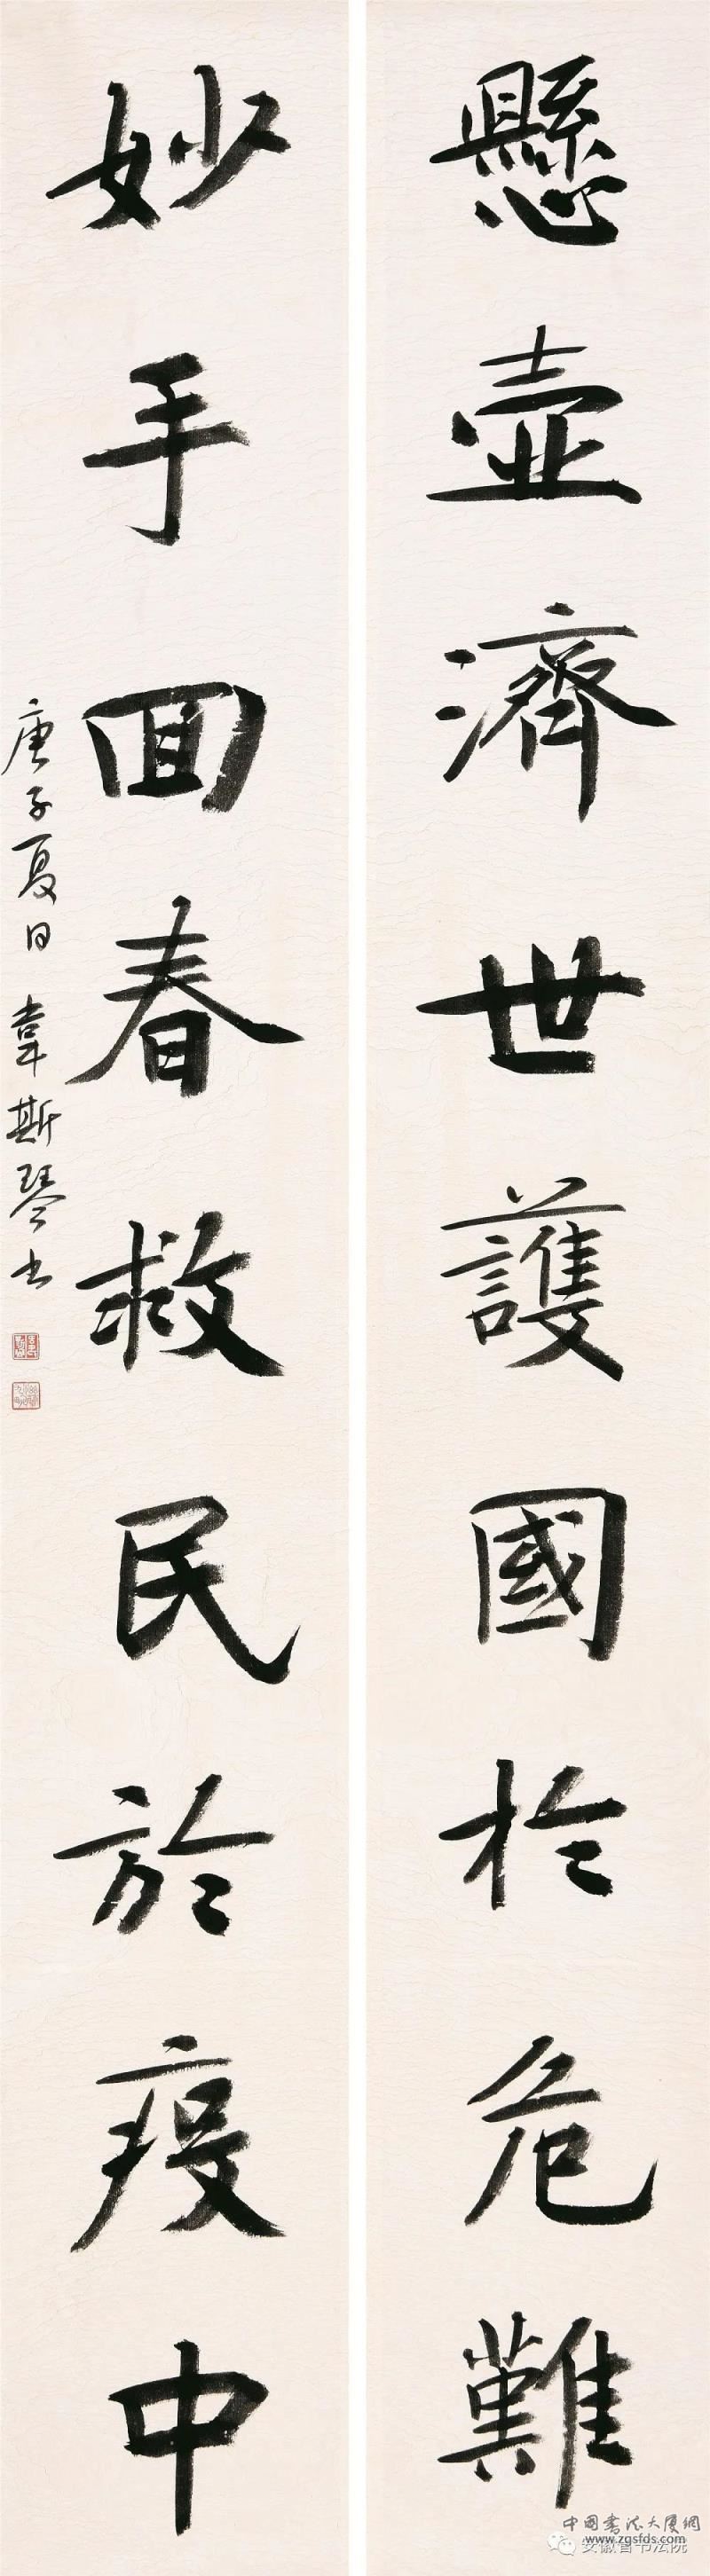 懸壺濟世護國於危難
妙手回春救民於疫中
庚子夏日韋斯琴书
中国书法大厦網
www.zgsfds.com
安徽省书法院